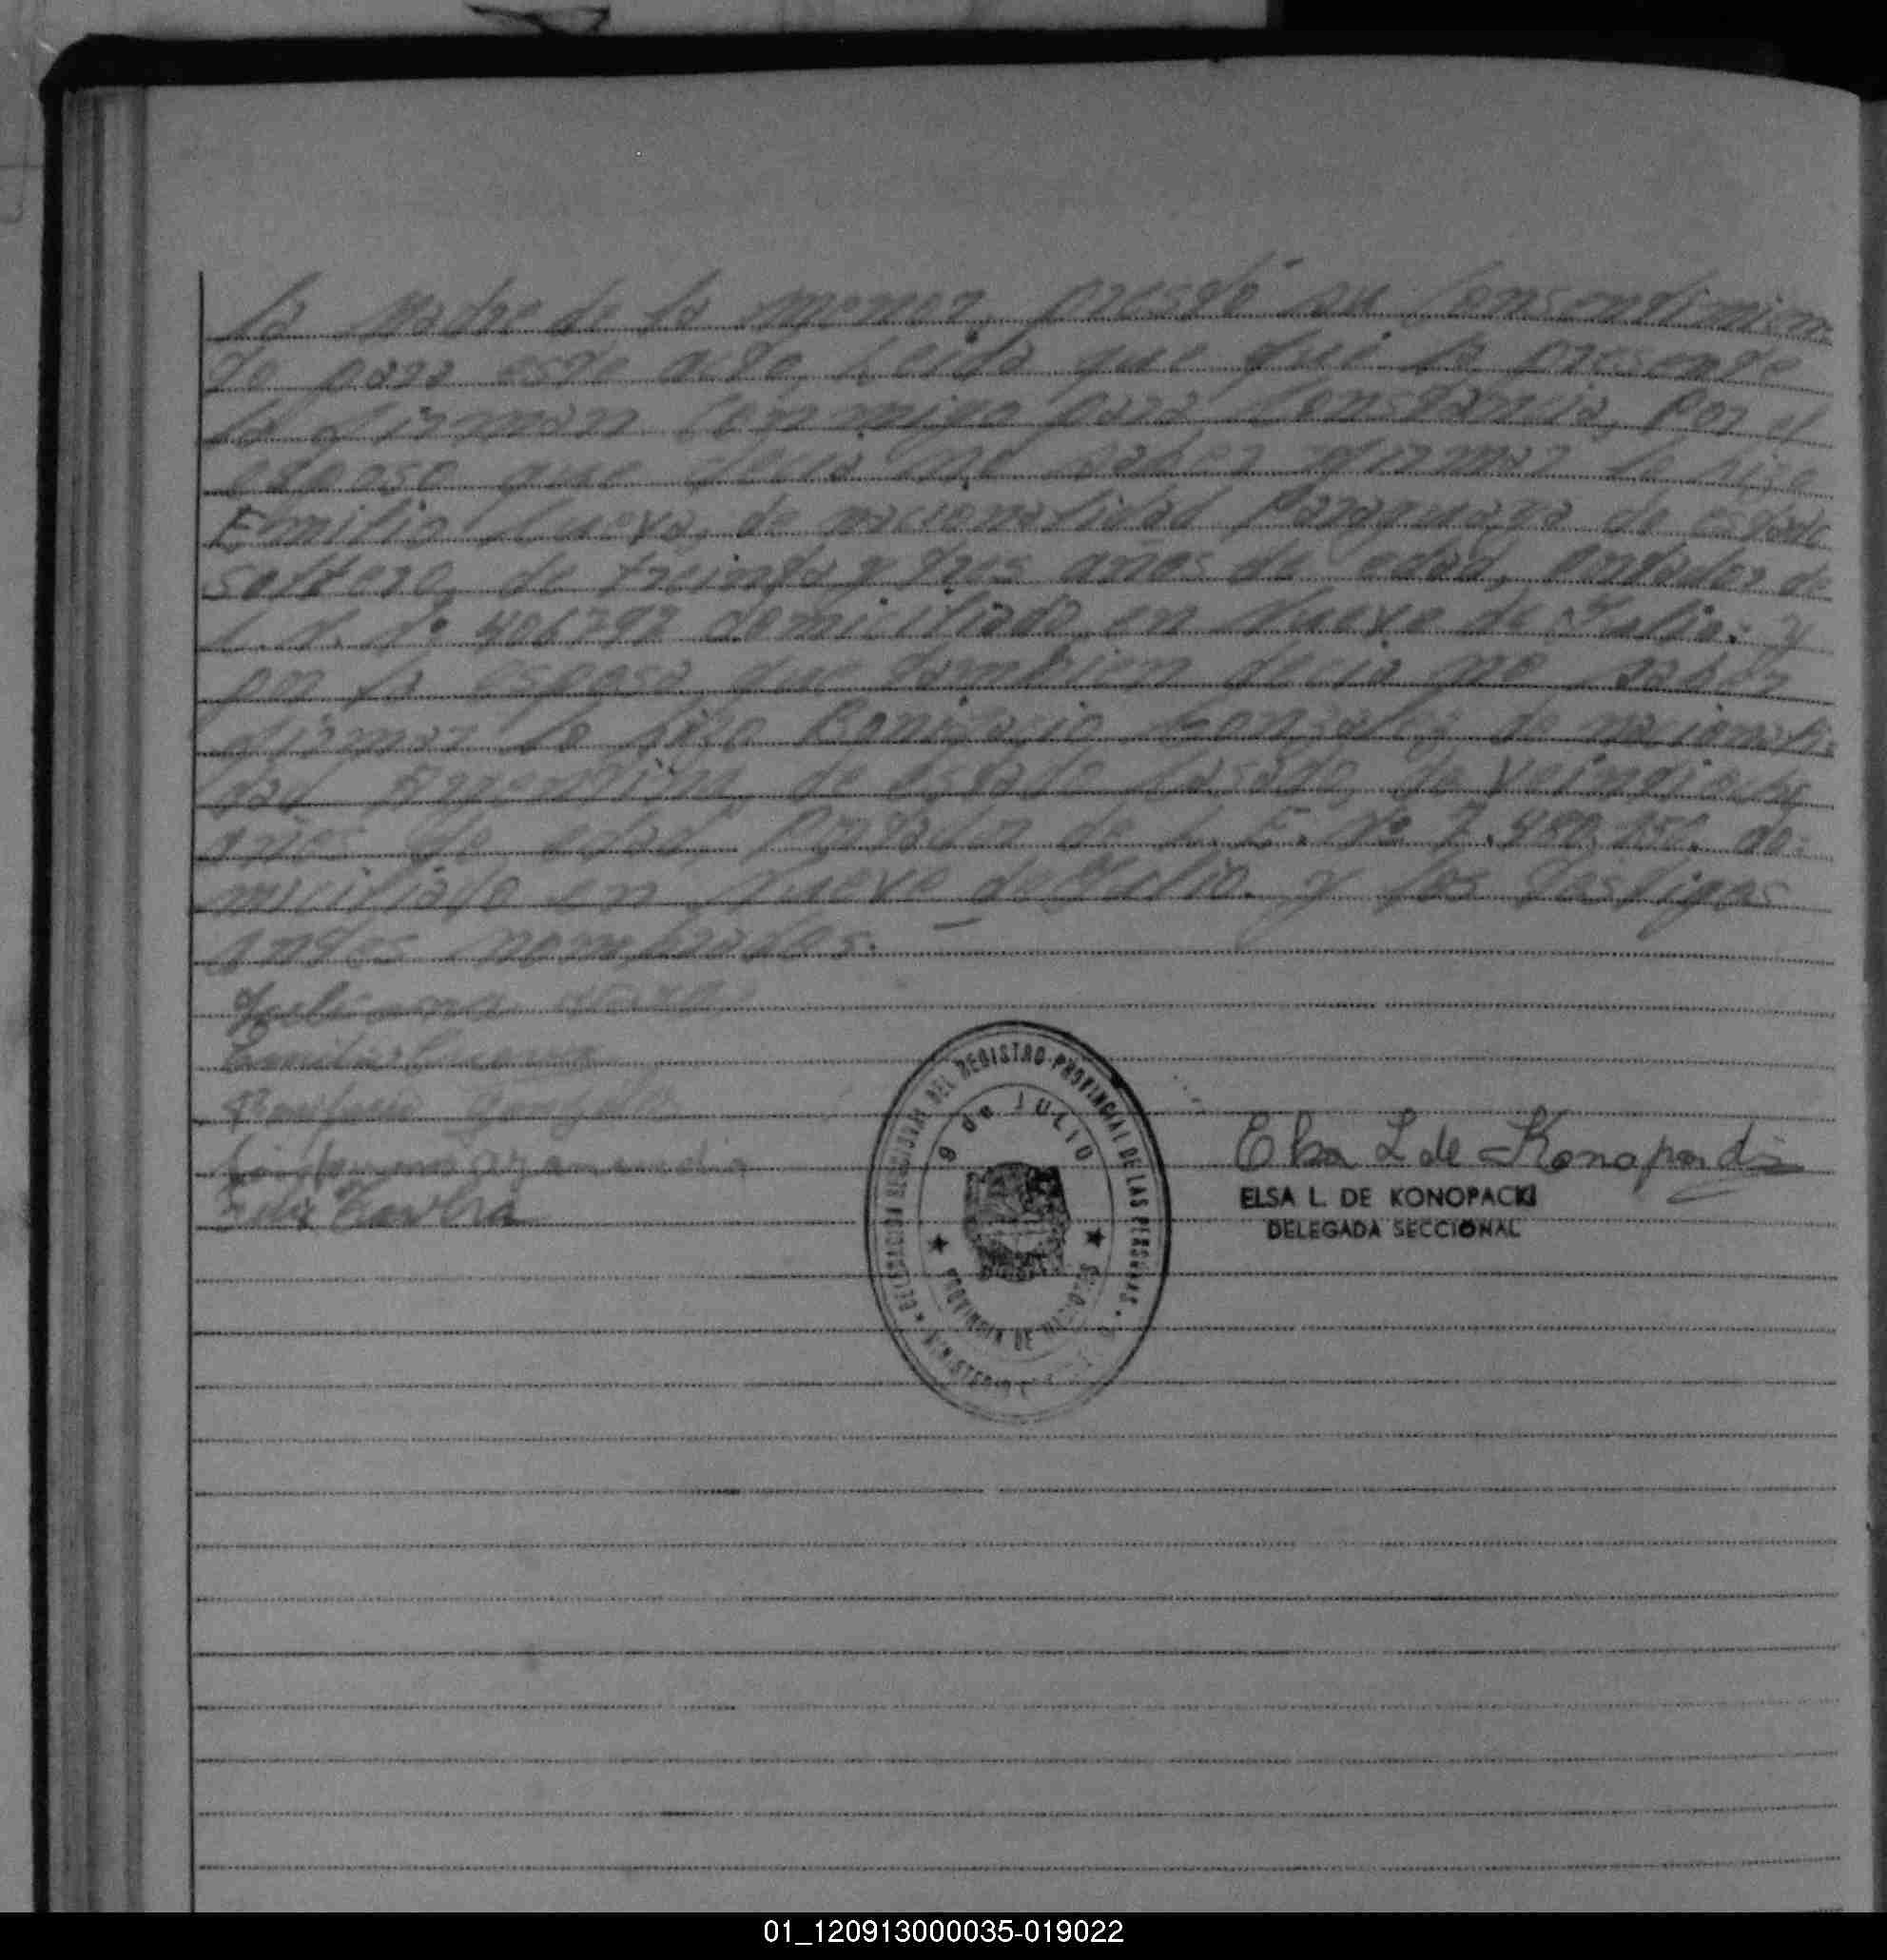 La Madre de la menor, prestó su Consentimien=
to para este acto, Leida que fué la presente
la firman Conmigo para Constancia, Por el
esposo que decia no saber firmar lo hizo
Emilio Cueva, de nacionalidad Paraguaya de estado
soltero, de treinta y tres años de edad, Portador de
domiciliado en Nueve de Julio: y
por la esposa que tambien decia no saber
firmar lo hizo Bonifacio Gonzalez de nacionali=
dad Argentina, de estado Casado, de Veintiocho
años de edad Portador de L. E. Nº 7. do=
miciliado en Nueve de Julio. y los Testigos
antes nombrados.
Juliana
Emilio Cueva
Bonifacio Gonzalez
DELEGACION SECCIONAL DEL REGISTRO PROVINCIAL DE LAS PERSONAS
9 de JULIO
PROVINCIA DE
MINISTERIO
Elsa L de Konopacki
ELSA L. DE KONOPACKI
DELEGADA SECCIONAL
01_120913000035-019022